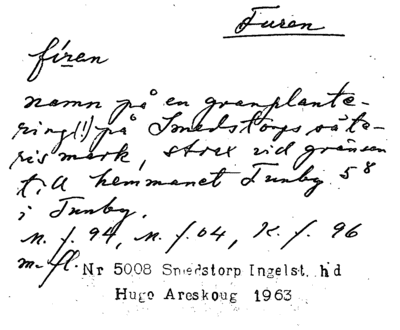 Furen
fíren
namn på en granplante-
ring (!) på Smedstorps säte-
ris mark, strax vid gränsen
t.ill hemmanet Tunby 5 8
i Tunby.
M. f. 94, M. f. 04, K. f. 96
m. fl.
Nr 5008 Smedstorp Ingelst. hd
Hugo Areskoug 1963